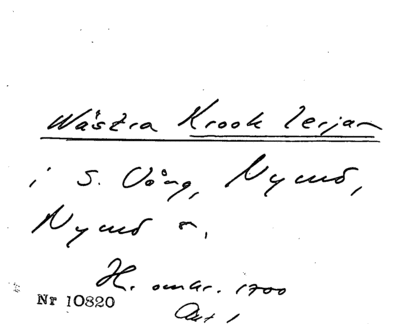 Wästra Krook lerjan
i S. Vång, Nymö,
Nymö s.
H. omkr. 1700
Akt 1
Nr 10820